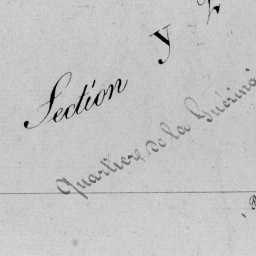 Section Y
Quartiere de la Guérinai